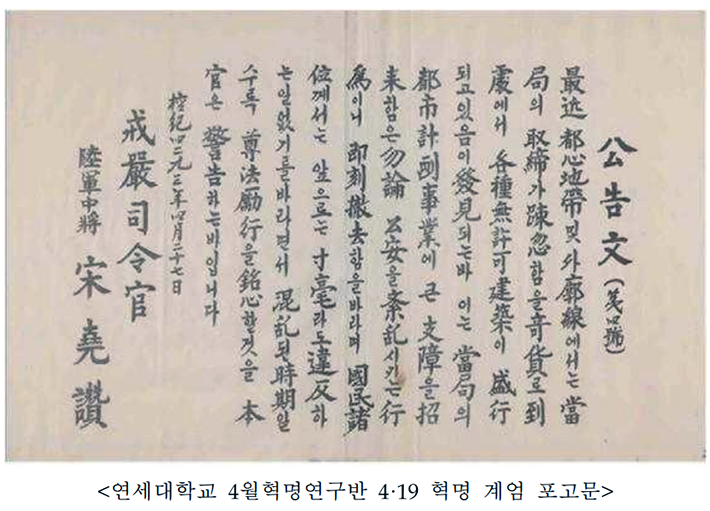 公告文 (第四號)
最近 都心地帶 및 外廓線에서는 當
局의 取締가 疎忽함을 奇貨로 到
處에서 各種無許可建築이 盛行
되고있음이 發見되는바 이는 當局의
都市計劃事業에 큰 支障을 招
來함은 勿論 公安을 紊乱시키는 行
爲이니 即刻撤去함을바라며 國民諸
位께서는 앞으로는 寸毫라도 違反하
는일없기를바라면서 混乱된 時期일
수록 尊法勵行을 銘心할것을 本
官은 警告하는바입니다
檀紀四二九三年四月二十七日
戒嚴司令官
陸軍中將 宋堯讚
<연세대학교 4월혁명연구반 4·19 혁명 계엄 포고문>